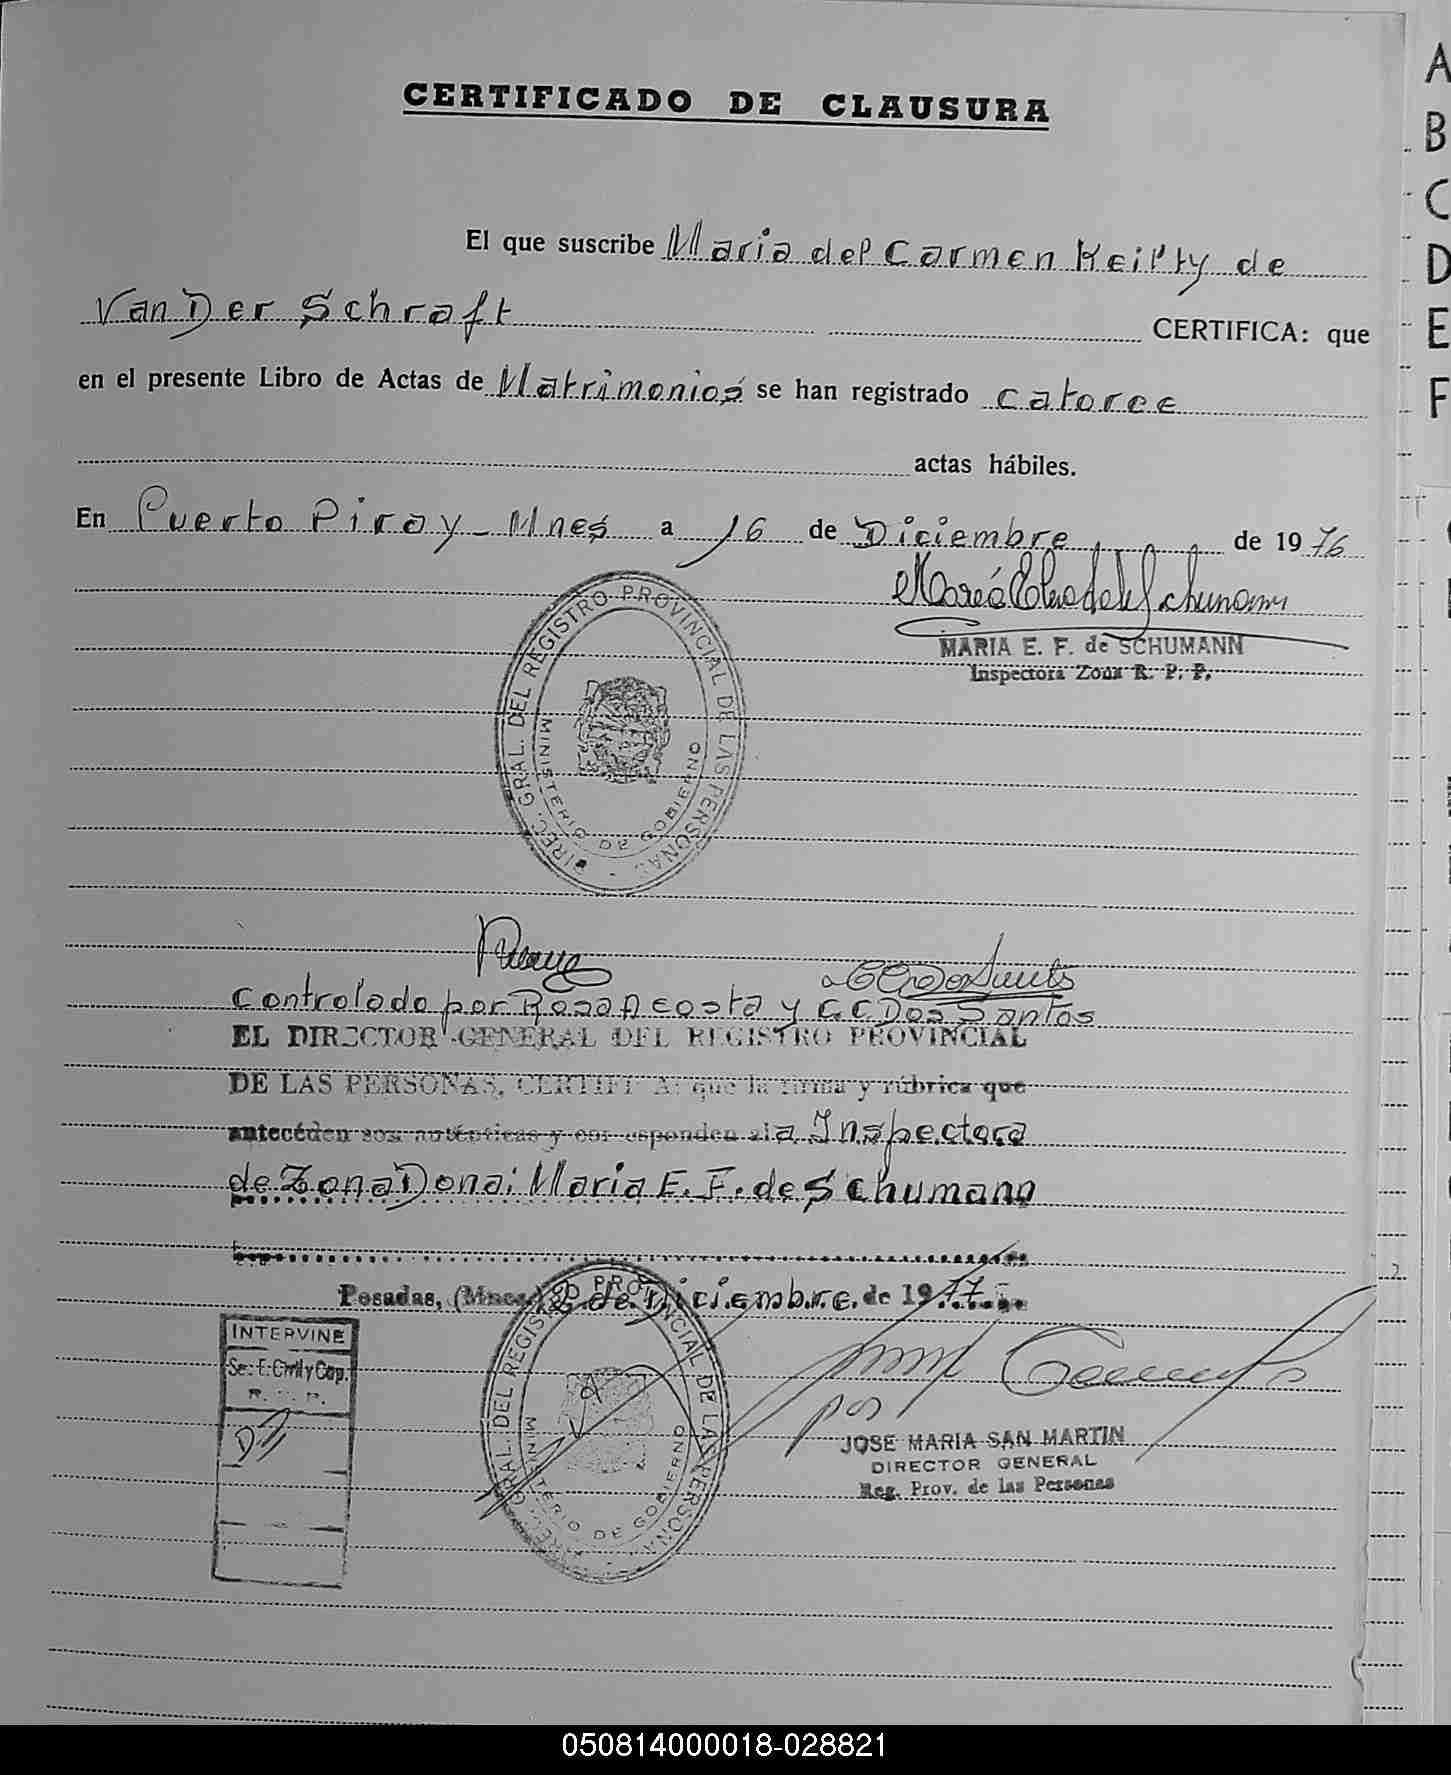 CERTIFICADO DE CLAUSURA
A
B
C
D
E
F
El que suscribe Maria del Carmen Keilty de
Van Der Schraft CERTIFICA: que
en el presente Libro de Actas de Matrimonios se han registrado catorce
actas hábiles.
En Puerto Piray - Mnes a 16 de Diciembre de 1976
MARIA E. F. de SCHUMANN
Inspectora Zona R. P. P.
DIREC. GRAL. DEL REGISTRO PROVINCIAL DE LAS PERSONAS
MINISTERIO DE GOBIERNO
Controlado por Rosa Acosta y C.C Dos Santos
EL DIRECTOR GENERAL DEL REGISTRO PROVINCIAL
DE LAS PERSONAS, CERTIFICA: que la firma y rúbrica que
anteceden son auténticas y corresponden a la Inspectora
de Zona Dona: Maria E. F. de Schumann
Posadas, (Mnes.) 2 de Diciembre de 1977
INTERVINE
Sec. E. Civil y Cap.
R. P. P.
DIREC. GRAL. DEL REGISTRO PROVINCIAL DE LAS PERSONAS
MINISTERIO DE GOBIERNO
por
JOSE MARIA SAN MARTIN
DIRECTOR GENERAL
Reg. Prov. de las Personas
050814000018-028821